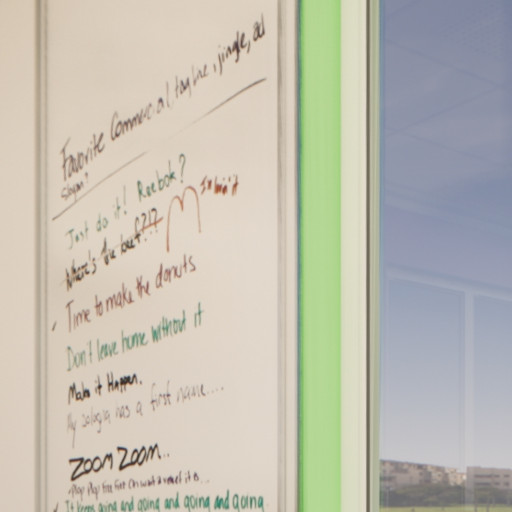 Favorite Commercial, tagline, jingle, ad
Slogan?
Just do it! Reebok?
I'm lovin' it
Where's the beef?!?
Time to make the donuts
Don't leave home without it
Make it Happen.
My bologna has a first name....
ZOOM ZOOM..
Plop Plop Fizz Fizz Oh what a relief it is...
It keeps going and going and going and going